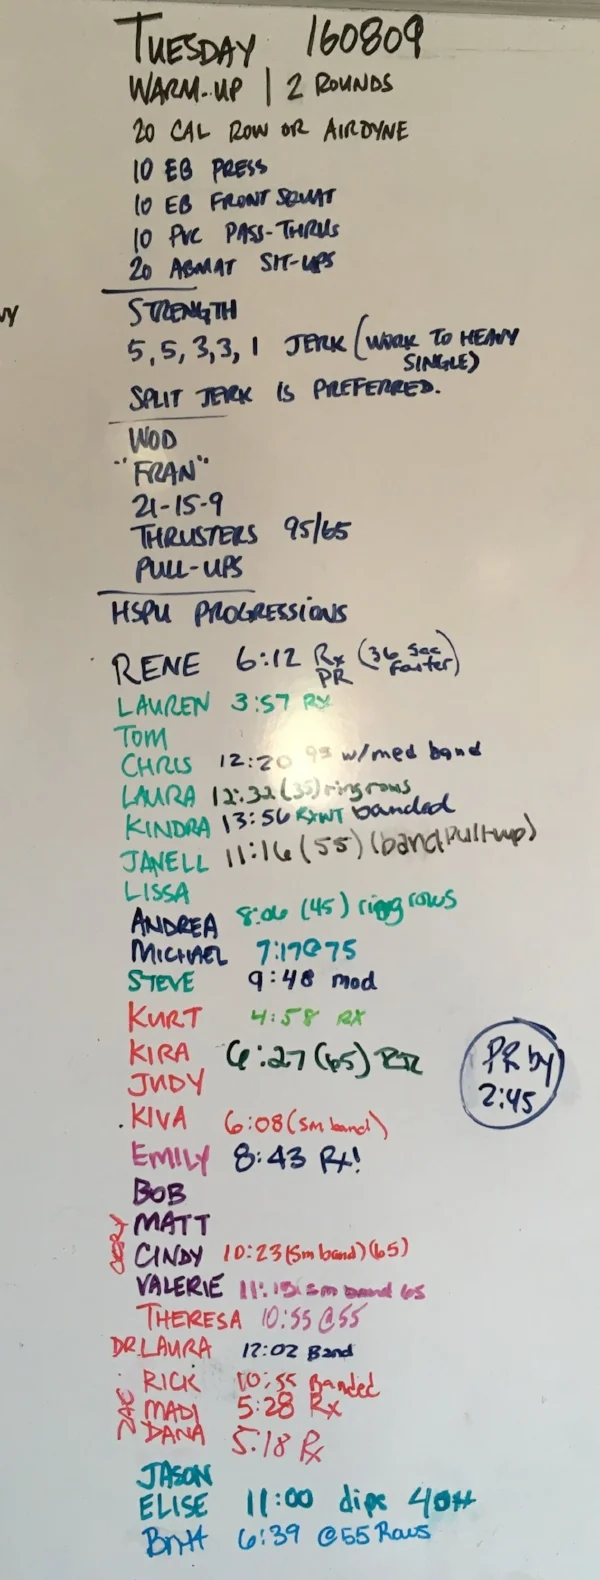 TUESDAY 160809
WARM-UP | 2 ROUNDS
20 CAL ROW OR AIRDYNE
10 EB PRESS
10 EB FRONT SQUAT
10 PVC PASS-THRUS
20 ABMAT SIT-UPS
STRENGTH
5, 5, 3, 3, 1 JERK (WORK TO HEAVY
SINGLE)
SPLIT JERK IS PREFERRED.
WOD
"FRAN"
21-15-9
THRUSTERS 95/65
PULL-UPS
HSPU PROGRESSIONS
RENE 6:12 Rx PR (36 sec faster)
LAUREN 3:57 RX
TOM
CHRIS 12:20 95 w/med band
LAURA 12:32 (35) ring rows
KINDRA 13:56 RXWT banded
JANELL 11:16 (55) (band Pull-up)
LISSA
ANDREA 8:06 (45) ring rows
MICHAEL 7:17@75
STEVE 9:48 mod
KURT 4:58 RX
KIRA 6:27 (65) RX
PR by
2:45
JUDY
KIVA 6:08 (sm band)
EMILY 8:43 Rx!
BOB
MATT
CINDY 10:23 (sm band) (65)
VALERIE 11:15 sm band 65
THERESA 10:55 @55
DR. LAURA 12:02 Band
RICK 10:55 Banded
ZAC
MADI 5:28 Rx
DANA 5:18 Rx
JASON
ELISE 11:00 dips 40#
Britt 6:39 @55 Rows